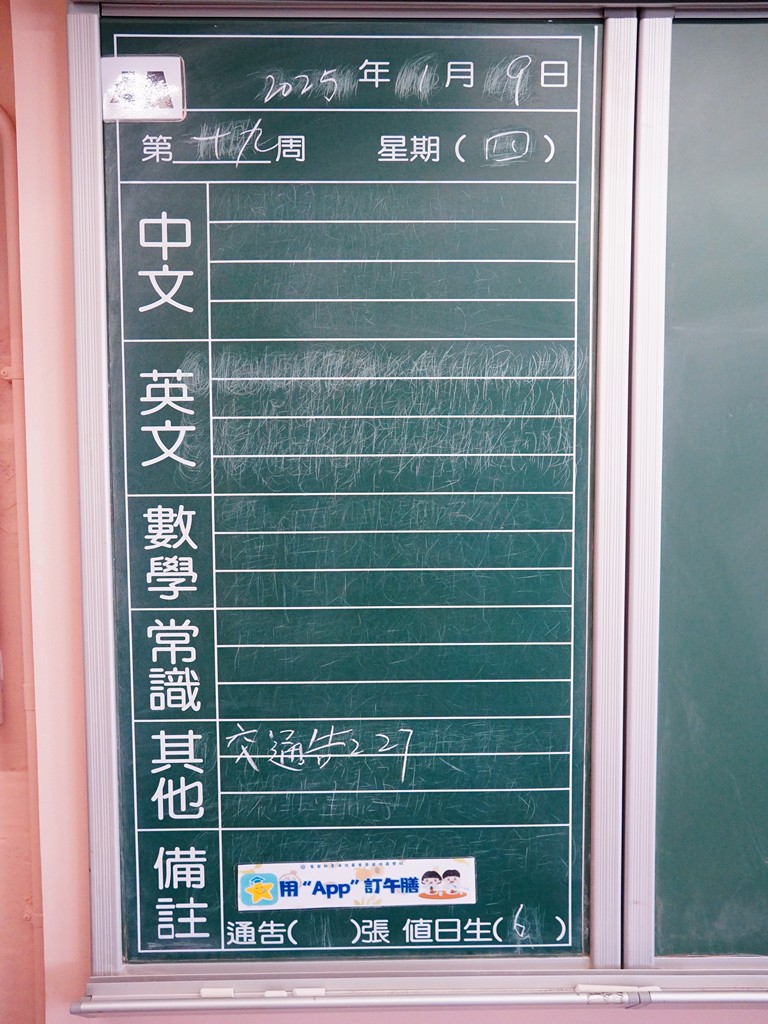 2025年1月9日
第十九周 星期(四)
中文
英文
數學
常識
其他 交通告227
備註
用“App”訂午膳
通告( )張 值日生(6)